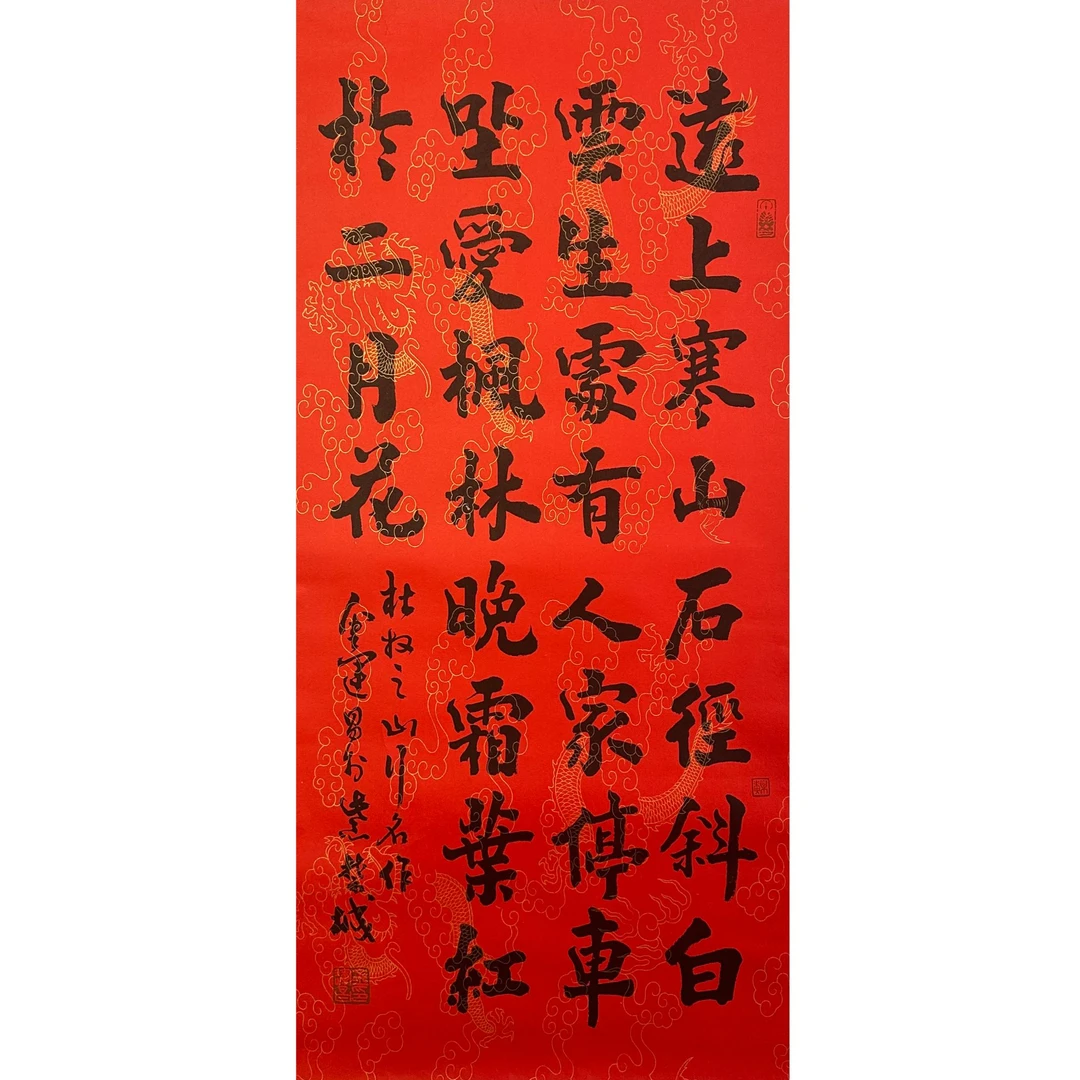 遠上寒山石徑斜白
雲生處有人家停車
坐愛楓林晚霜葉紅
於二月花
杜牧之山行名作
金運昌於紫禁城